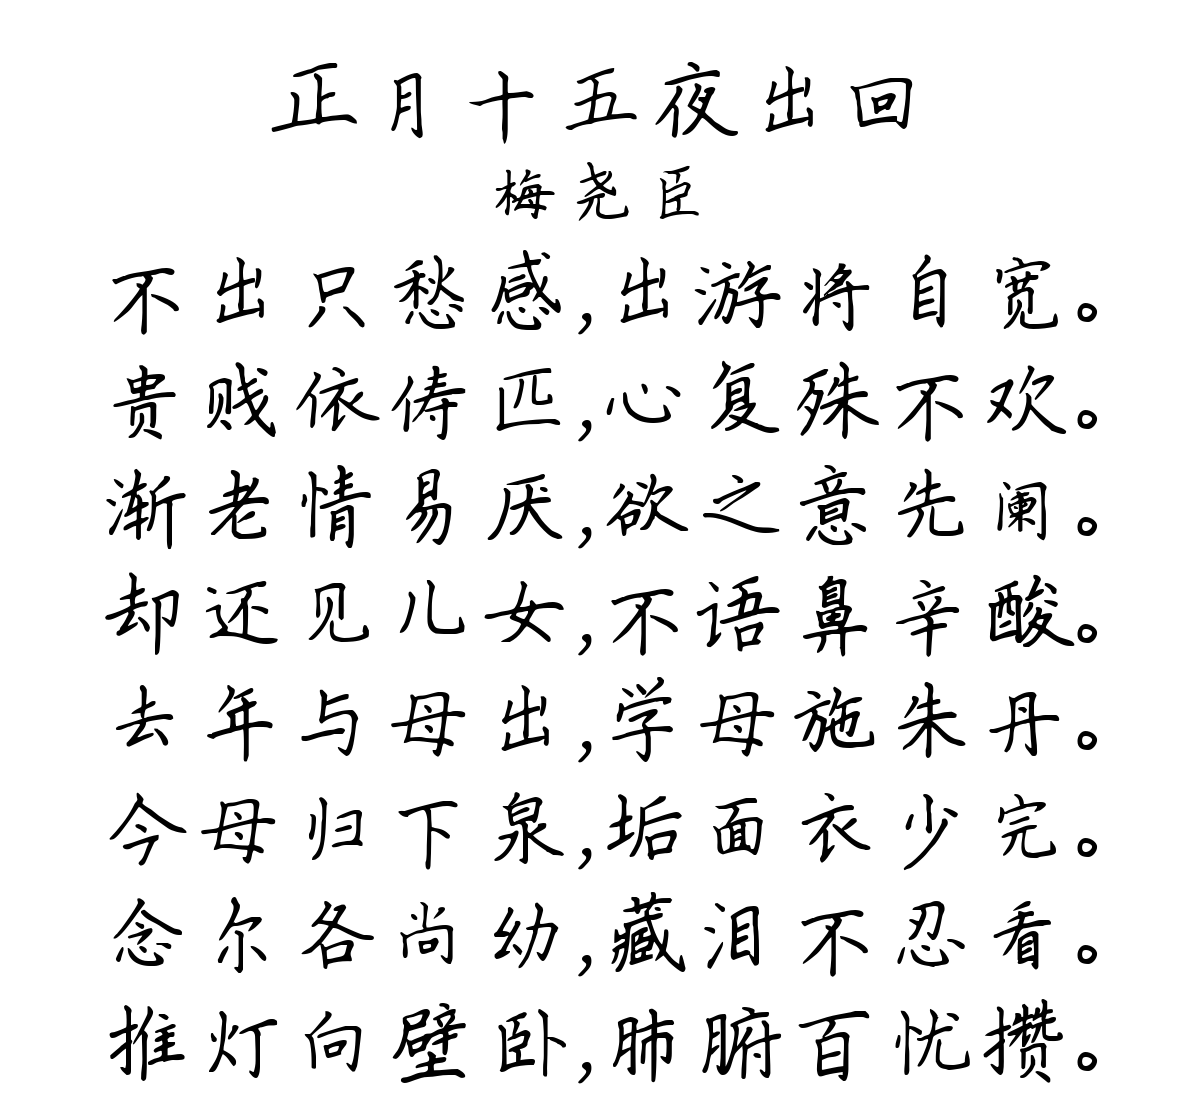 正月十五夜出回
梅尧臣
不出只愁感,出游将自宽。
贵贱依俦匹,心复殊不欢。
渐老情易厌,欲之意先阑。
却还见儿女,不语鼻辛酸。
去年与母出,学母施朱丹。
今母归下泉,垢面衣少完。
念尔各尚幼,藏泪不忍看。
推灯向壁卧,肺腑百忧攒。